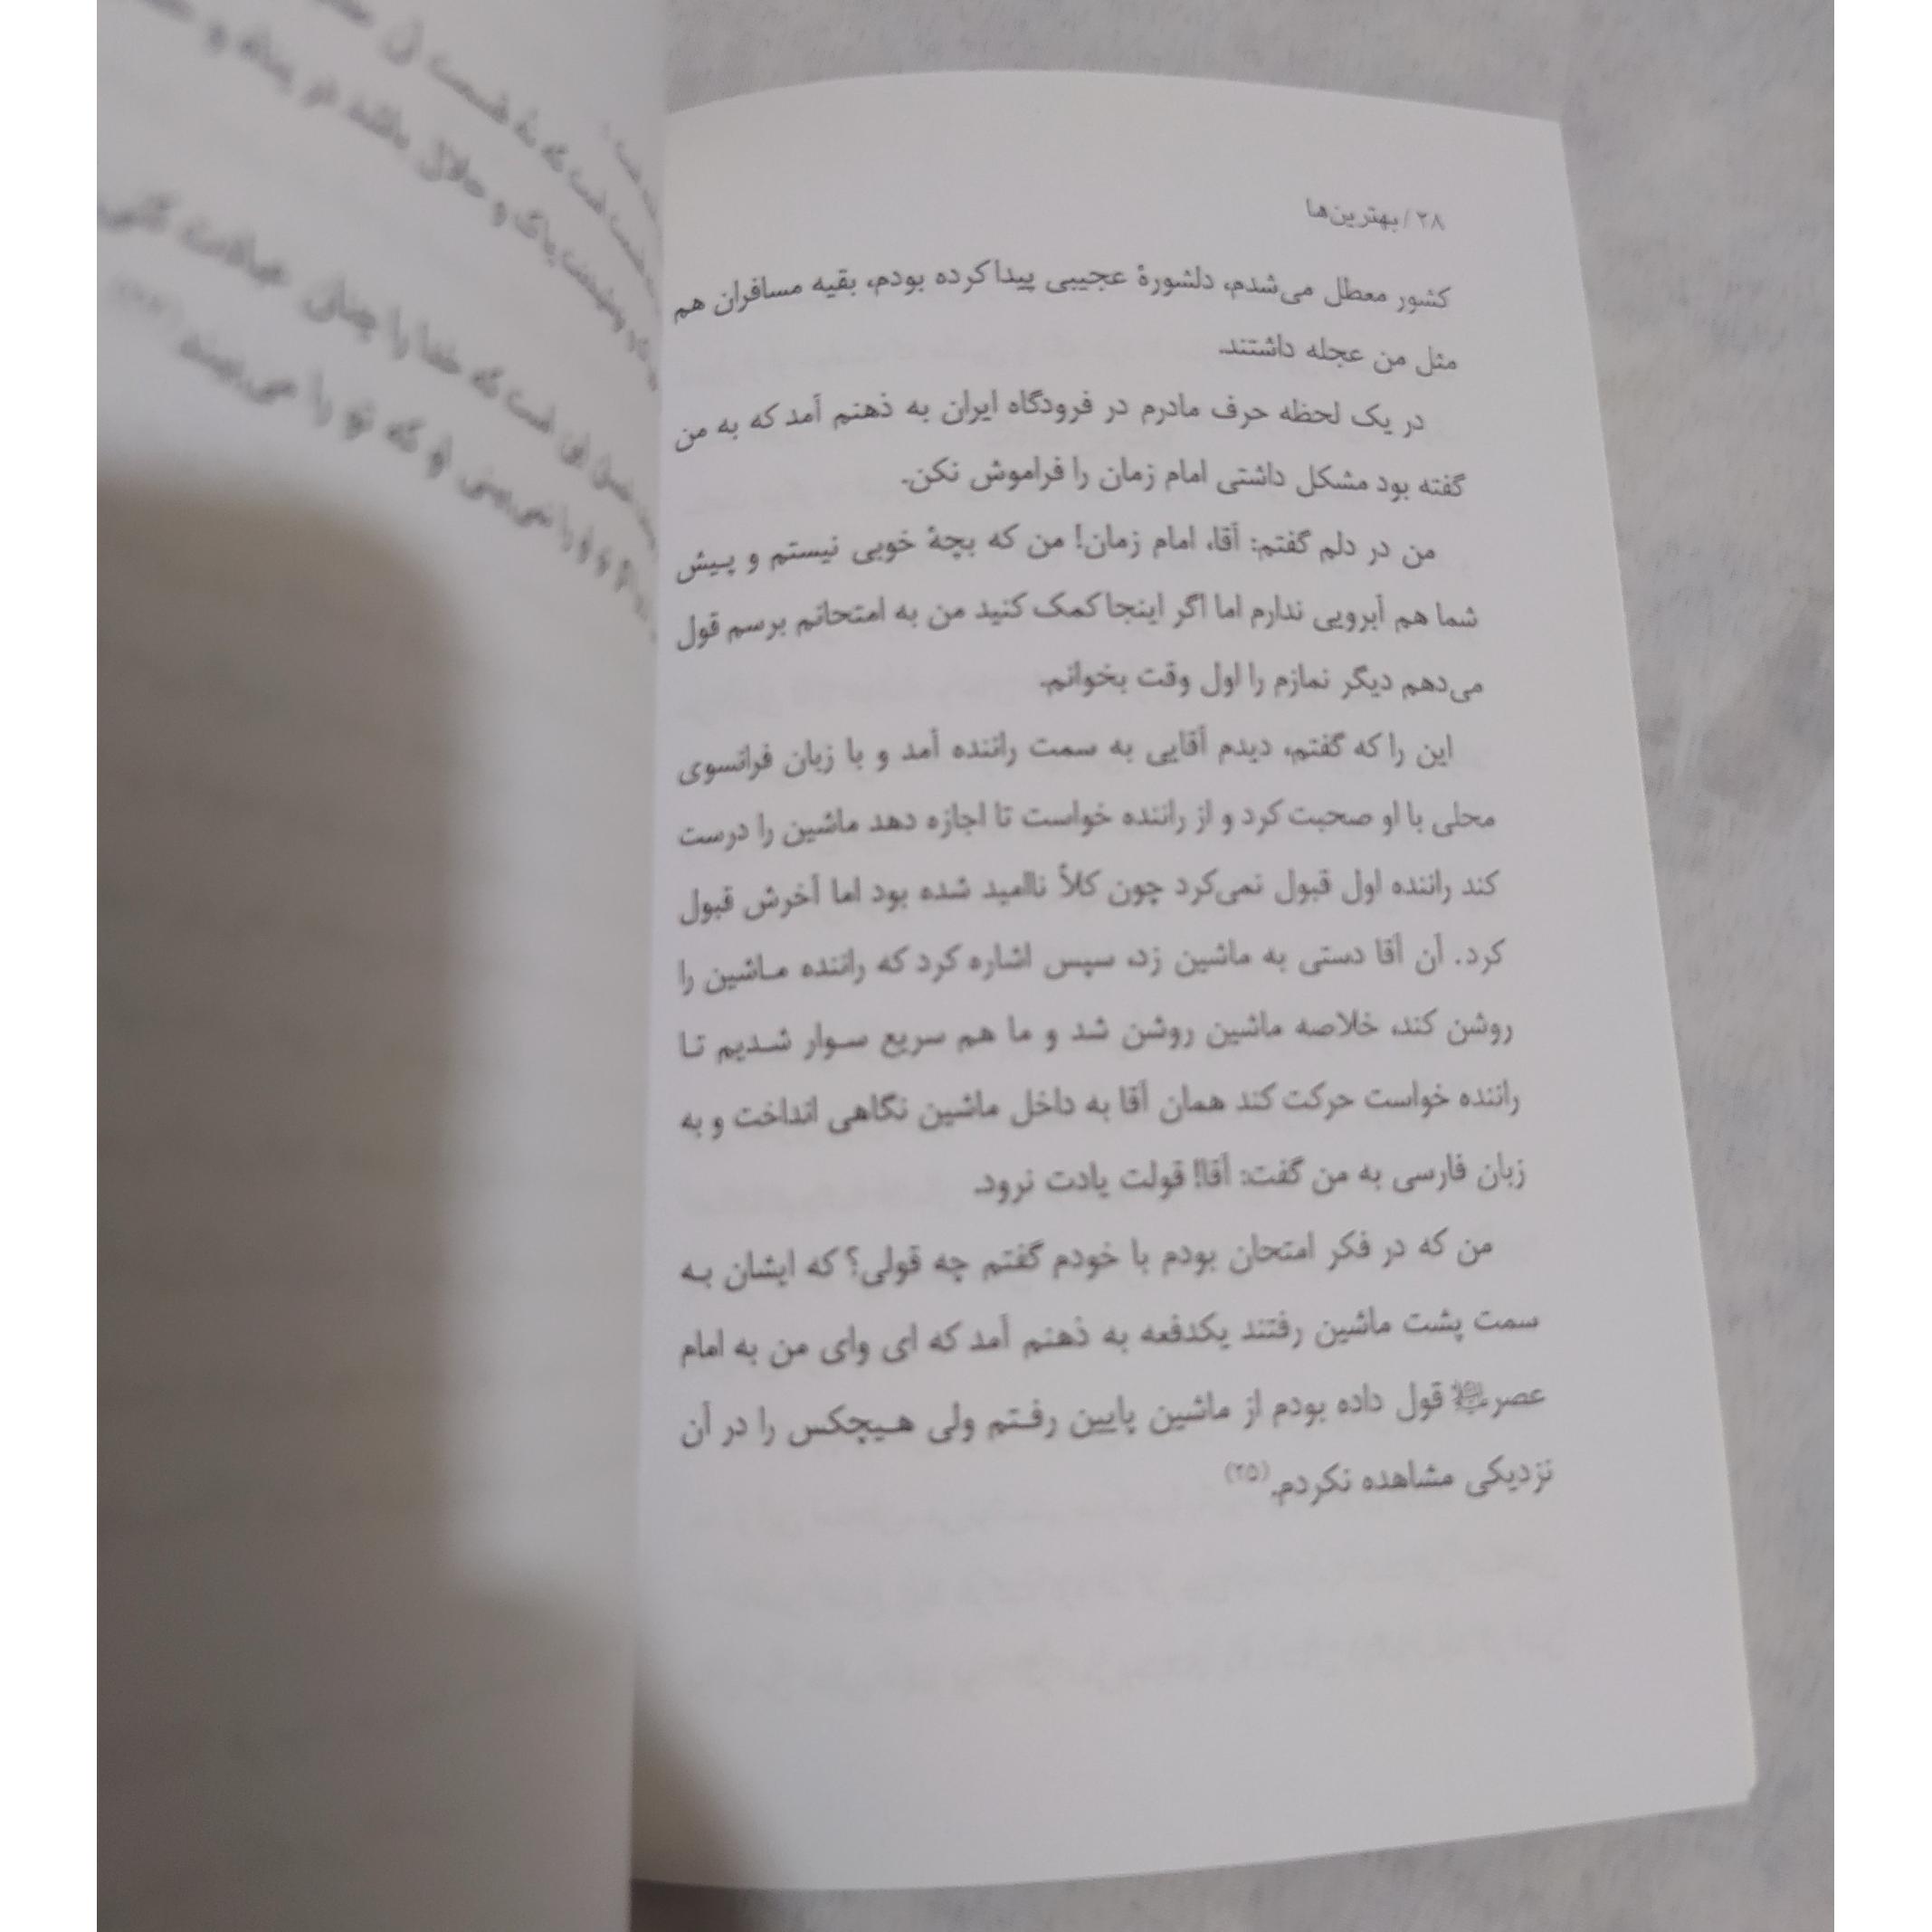 ۲۸ / بهترین‌ها
کشور معطل می‌شدم، دلشورهٔ عجیبی پیدا کرده بودم، بقیه مسافران هم
مثل من عجله داشتند.
در یک لحظه حرف مادرم در فرودگاه ایران به ذهنم آمد که به من
گفته بود مشکل داشتی امام زمان را فراموش نکن.
من در دلم گفتم: آقا، امام زمان! من که بچهٔ خوبی نیستم و پیش
شما هم آبرویی ندارم اما اگر اینجا کمک کنید من به امتحانم برسم قول
می‌دهم دیگر نمازم را اول وقت بخوانم.
این را که گفتم، دیدم آقایی به سمت راننده آمد و با زبان فرانسوی
محلی با او صحبت کرد و از راننده خواست تا اجازه دهد ماشین را درست
کند راننده اول قبول نمی‌کرد چون کلاً ناامید شده بود اما آخرش قبول
کرد. آن آقا دستی به ماشین زد، سپس اشاره کرد که راننده ماشین را
روشن کند، خلاصه ماشین روشن شد و ما هم سریع سوار شدیم تا
راننده خواست حرکت کند همان آقا به داخل ماشین نگاهی انداخت و به
زبان فارسی به من گفت: آقا! قولت یادت نرود.
من که در فکر امتحان بودم با خودم گفتم چه قولی؟ که ایشان به
سمت پشت ماشین رفتند یکدفعه به ذهنم آمد که ای وای من به امام
عصر قول داده بودم از ماشین پایین رفتم ولی هیچکس را در آن
نزدیکی مشاهده نکردم.(۲۵)
پاک و حلال باشد در پناه و
که خدا را چنان عبادت کنی
او را نمی‌بینی او که تو را می‌بیند